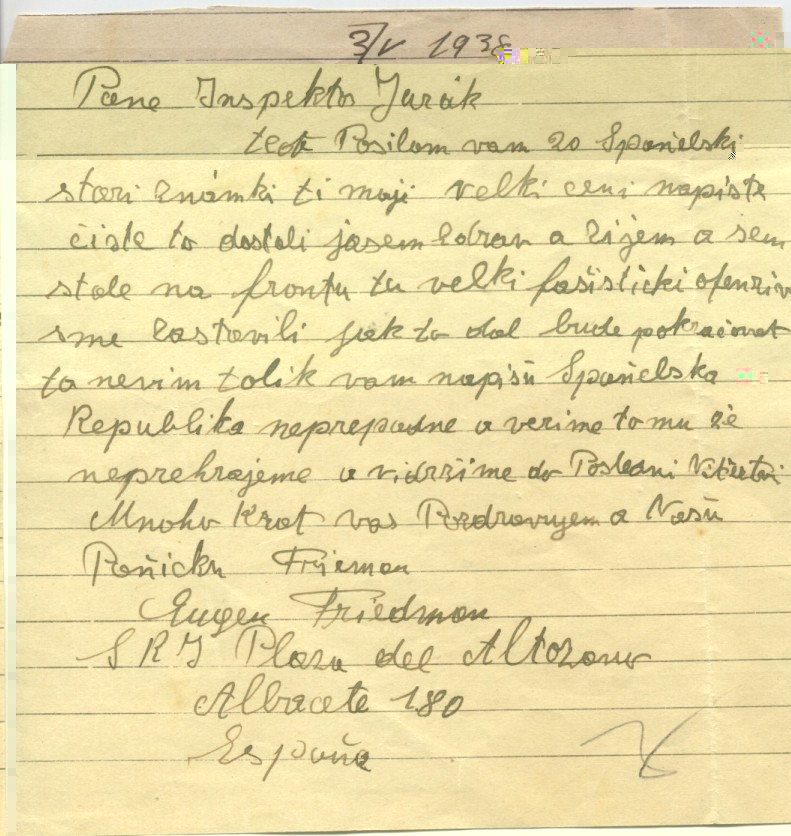 3/V 1938
Pane Inspektor Jurák
teď Posilam vam 20 Španělski
stari známki ti maji velki ceni napiste
čiste to dostali jasem zdrav a žijem a sem
stale na frontu tu velki fašisticki ofenziv
sme zastavili jak to dal bude pokračovat
to nevim tolik vam napišu Španělska
Republika neprepadne a verime tomu že
neprehrajeme a vidržime do Posledni
Mnoho Krat vas Pozdravujem a Vašu
Paňičku Frieman
Eugen Friedman
S R J Plaza del Altozano
Albacete 180
España